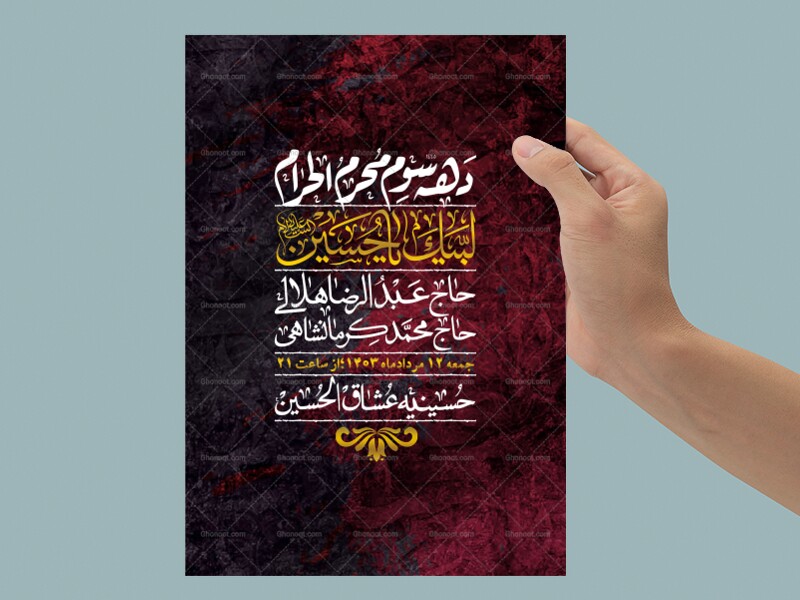 دهه سوم محرم الحرام
لبیک یا حسین علیه السلام
حاج عبدالرضا هلالی
حاج محمد کرمانشاهی
جمعه ۱۲ مردادماه ۱۴۰۳؛ از ساعت ۲۱
حسینیه عشاق الحسین
Ghonoot.com